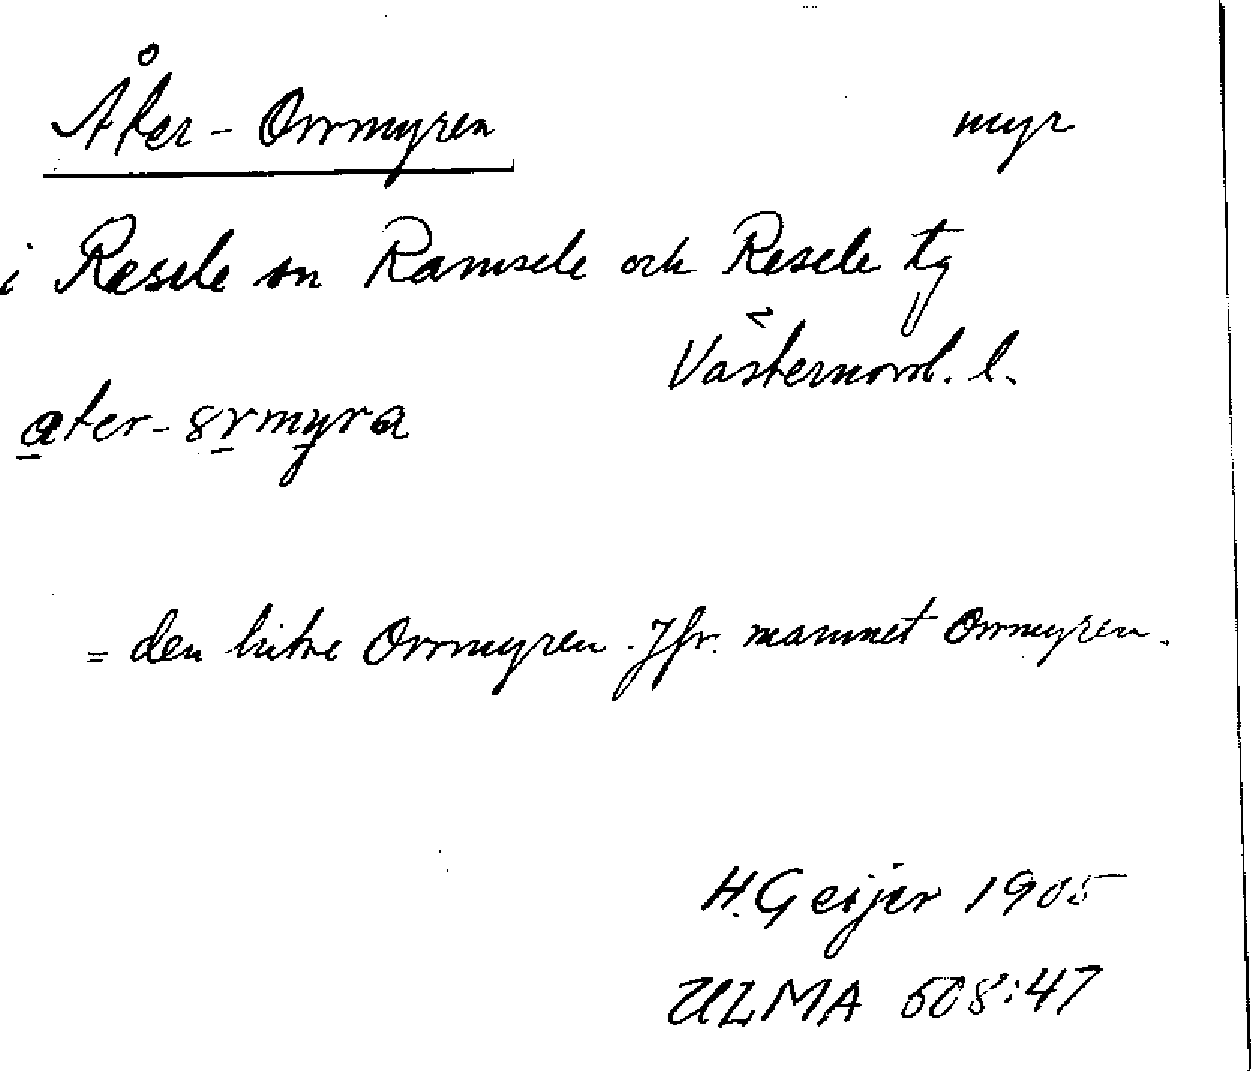 Åker-Orrmyren myr
i Resele sn Ramsele och Resele tg
Västernorrl. l.
= den lutre Orrmyren. Jfr. namnet Orrmyren.
H. Geijer 1905
ULMA 608:47